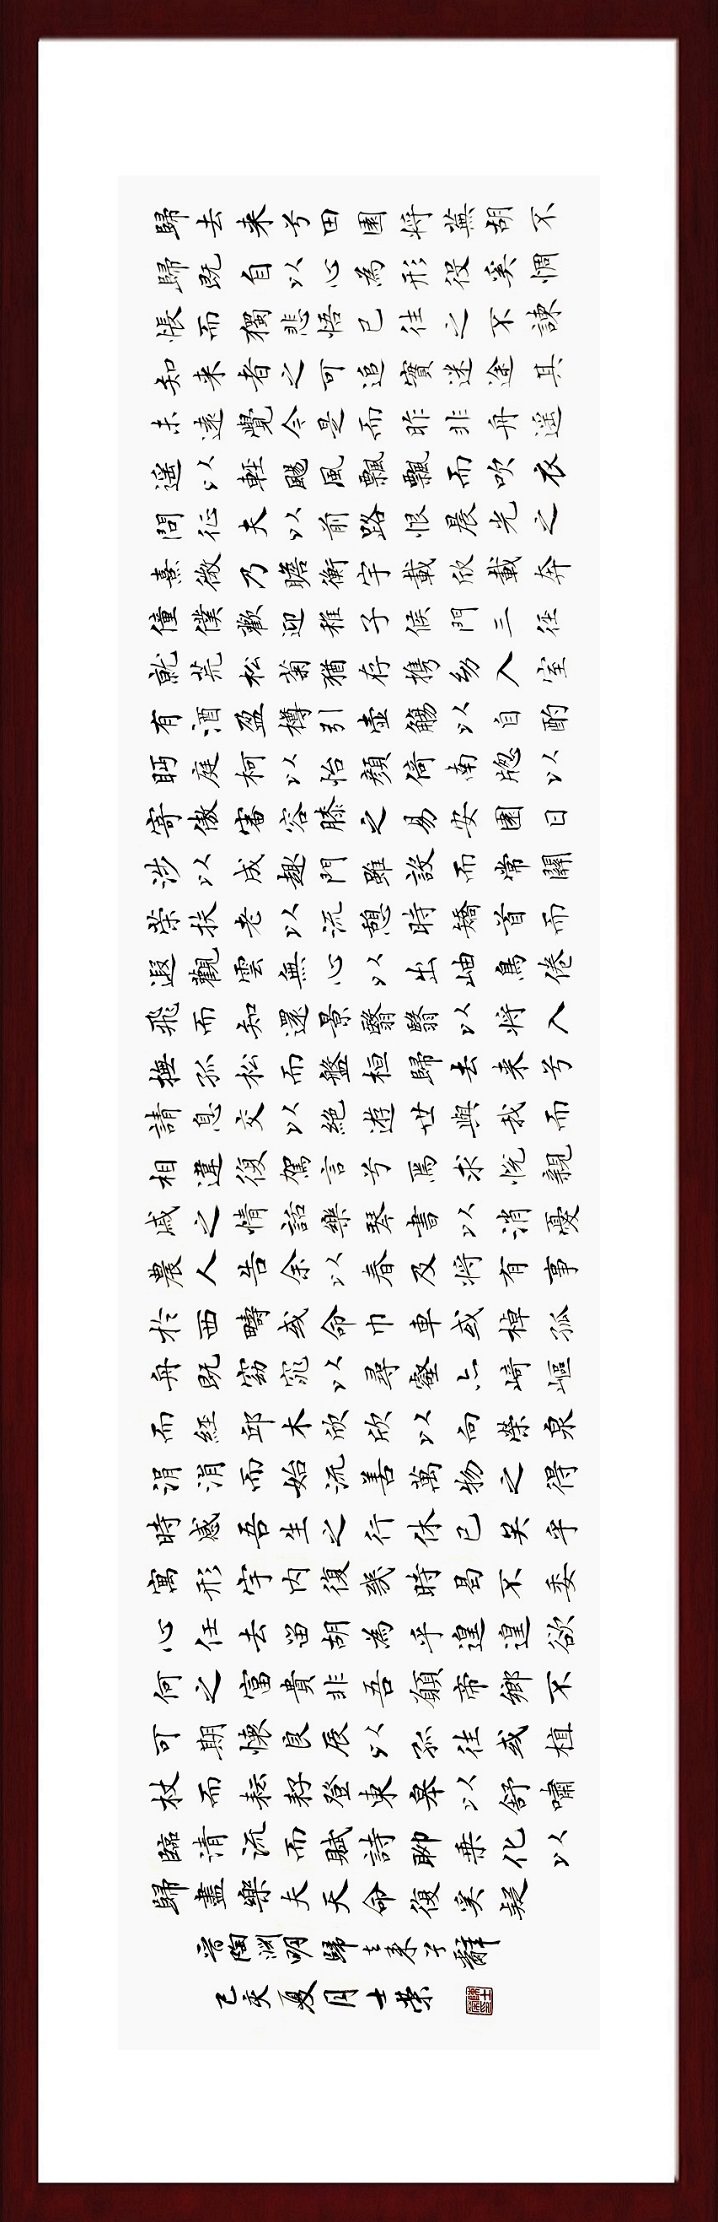 歸去来兮田園將蕪胡不
歸既自以心為形役奚惆
悵而獨悲悟已往之不諫
知来者之可追實迷途其
未遠覺今是而昨非舟遥
遥以輕颺風飄飄而吹衣
問征夫以前路恨晨光之
熹微乃瞻衡宇載欣載奔
僮僕歡迎稚子候門三径
就荒松菊猶存携幼入室
有酒盈樽引壺觴以自酌
眄庭柯以怡顔倚南牎以
寄傲審容膝之易安園日
涉以成趣門雖設而常關
策扶老以流憩時矯首而
遐觀雲無心以出岫鳥倦
飛而知還景翳翳以將入
撫孤松而盤桓歸去来兮
請息交以絶遊世與我而
相違復駕言兮焉求悦親
戚之情話樂琴書以消憂
農人告余以春及將有事
於西疇或命巾車或棹孤
舟既窈窕以尋壑亦崎嶇
而經邱木欣欣以向榮泉
涓涓而始流善萬物之得
時感吾生之行休已矣乎
寓形宇内復幾時曷不委
心任去留胡為乎遑遑欲
何之富貴非吾願帝鄉不
可期懷良辰以孤往或植
杖而耘耔登東皋以舒嘯
臨清流而賦詩聊乗化以
歸盡樂夫天命復奚疑
晋陶淵明歸去来兮辭
己亥夏月士榮